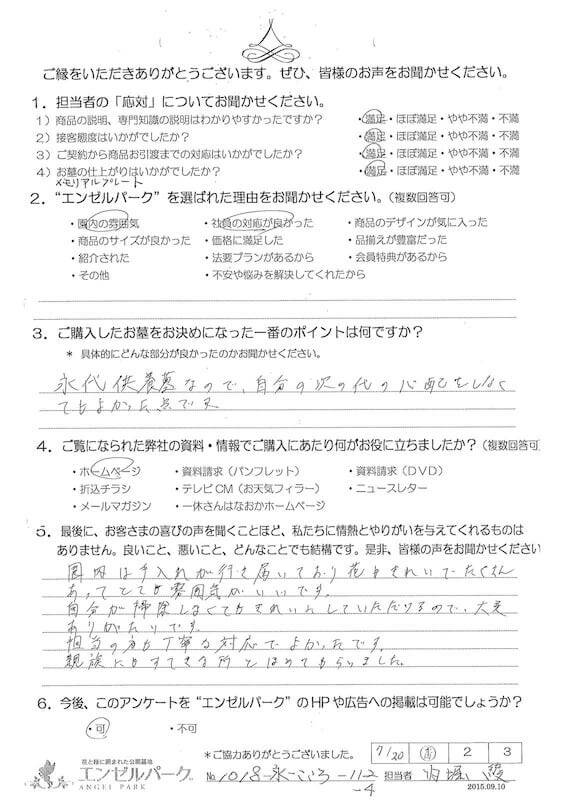 ご縁をいただきありがとうございます。ぜひ、皆様のお声をお聞かせください。
1．担当者の「応対」についてお聞かせください。
1）商品の説明、専門知識の説明はわかりやすかったですか？ ・満足・ほぼ満足・やや不満・不満
2）接客態度はいかがでしたか？ ・満足・ほぼ満足・やや不満・不満
3）ご契約から商品お引渡までの対応はいかがでしたか？ ・満足・ほぼ満足・やや不満・不満
4）お墓の仕上がりはいかがですか？ ・満足・ほぼ満足・やや不満・不満
メモリアルプレート
2．“エンゼルパーク”を選ばれた理由をお聞かせください。（複数回答可）
・園内の雰囲気 ・社員の対応が良かった ・商品のデザインが気に入った
・商品のサイズが良かった ・価格に満足した ・品揃えが豊富だった
・紹介された ・法要プランがあるから ・会員特典があるから
・その他 ・不安や悩みを解決してくれたから
3．ご購入したお墓をお決めになった一番のポイントは何ですか？
＊ 具体的にどんな部分が良かったのかお聞かせください。
永代供養墓なので、自分の次の代の心配をしなく
てもよかった点です
4．ご覧になられた弊社の資料・情報でご購入にあたり何がお役に立ちましたか？（複数回答可
・ホームページ ・資料請求（パンフレット） ・資料請求（DVD）
・折込チラシ ・テレビCM（お天気フィラー） ・ニュースレター
・メールマガジン ・一休さんはなおかホームページ
5．最後に、お客さまの喜びの声を聞くことほど、私たちに情熱とやりがいを与えてくれるものは
ありません。良いこと、悪いこと、どんなことでも結構です。是非、皆様の声をお聞かせください
園内は手入れが行き届いており花もきれいでたくさん
あってとても雰囲気がいいです。
自分が掃除しなくてもきれいにしていただけるので、大変
ありがたいです。
担当の方も丁寧な対応でよかったです。
親族にもすてきな所とほめてもらいました。
6．今後、このアンケートを“エンゼルパーク”のHPや広告への掲載は可能でしょうか？
・可 ・不可
＊ご協力ありがとうございました。 7/20 2 3
花と緑に囲まれた公園墓地
エンゼルパーク
ANGEL PARK
No. 1018-永-こころ-112-4 担当者
2015.09.10